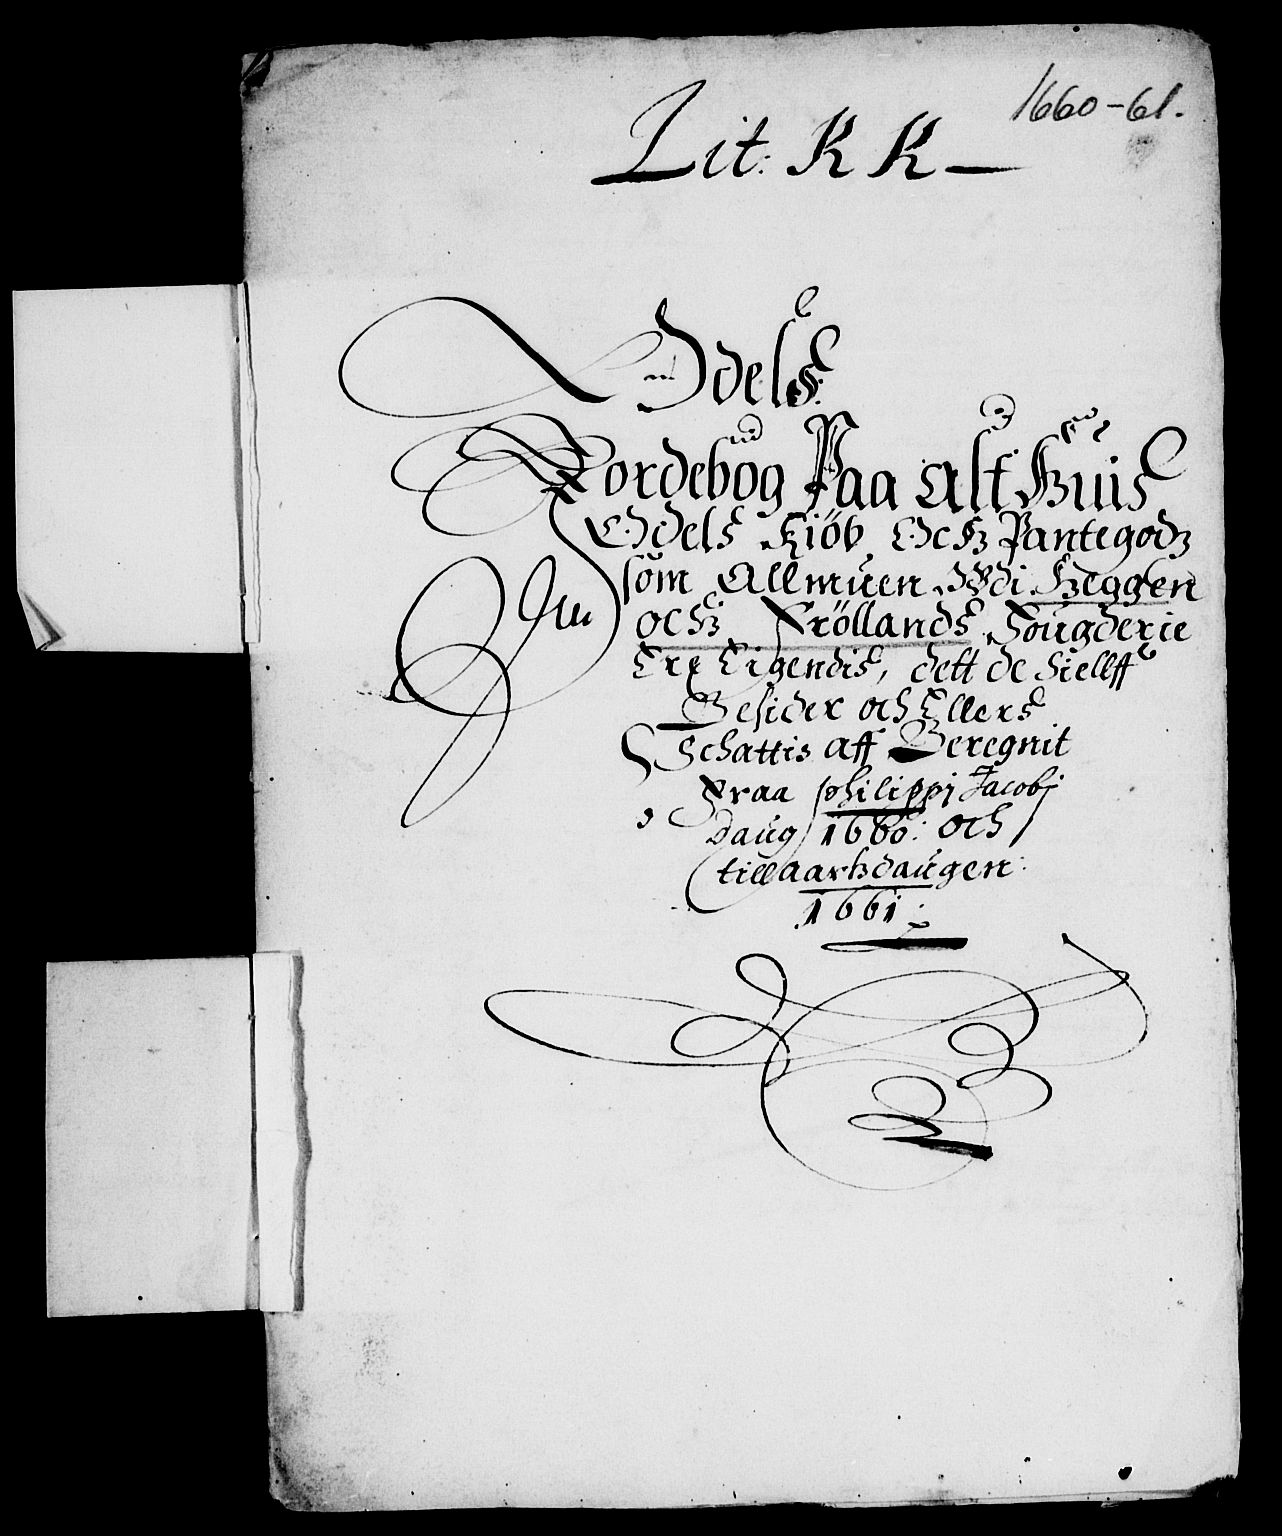 1660-61.
Lit: K K
Odels
Jordebog Paa alt Huis
Odels Kiöb Och Pantegodz
som Allmuen Vdi Heggen
och Fröllands Fougderie
Ere Eigendis, dett de Sielff
Besider och Ellers
Schattis aff Beregnit
Fraa philippi Jacobi
daug 1660: och
till aarsdaugen:
1661: